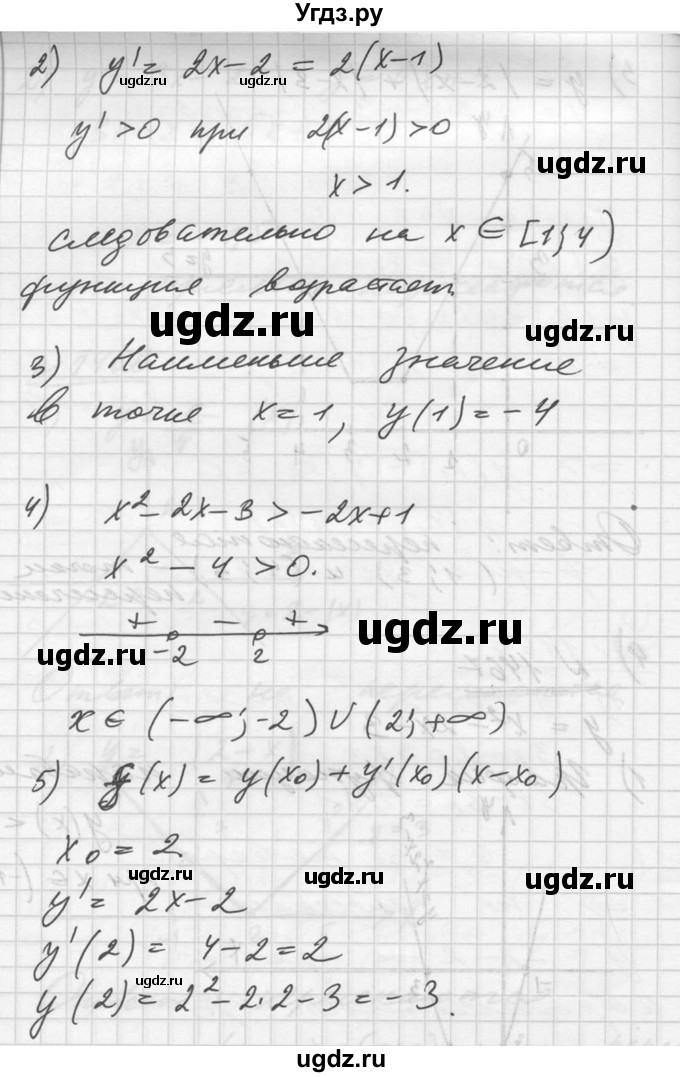 Угдз.ру
2) y' = 2x - 2 = 2(x-1)
ugdz.ru
y' > 0 при 2(x-1) > 0
ugdz.ru
x > 1.
следовательно на x ∈ [1; 4)
функция возрастает.
ugdz.ru
ugdz.ru
3) Наименьше значение
в точке x = 1, y(1) = -4
4) x² - 2x - 3 > -2x + 1
x² - 4 > 0.
+ - +
ugdz.ru
ugdz.ru
-2 2
x ∈ (-∞; -2) ∪ (2; +∞)
5) f(x) = y(x₀) + y'(x₀)(x - x₀)
x₀ = 2
ugdz.ru
ugdz.ru
y' = 2x - 2
y'(2) = 4 - 2 = 2
ugdz.ru
y(2) = 2² - 2·2 - 3 = -3.
ugdz.ru